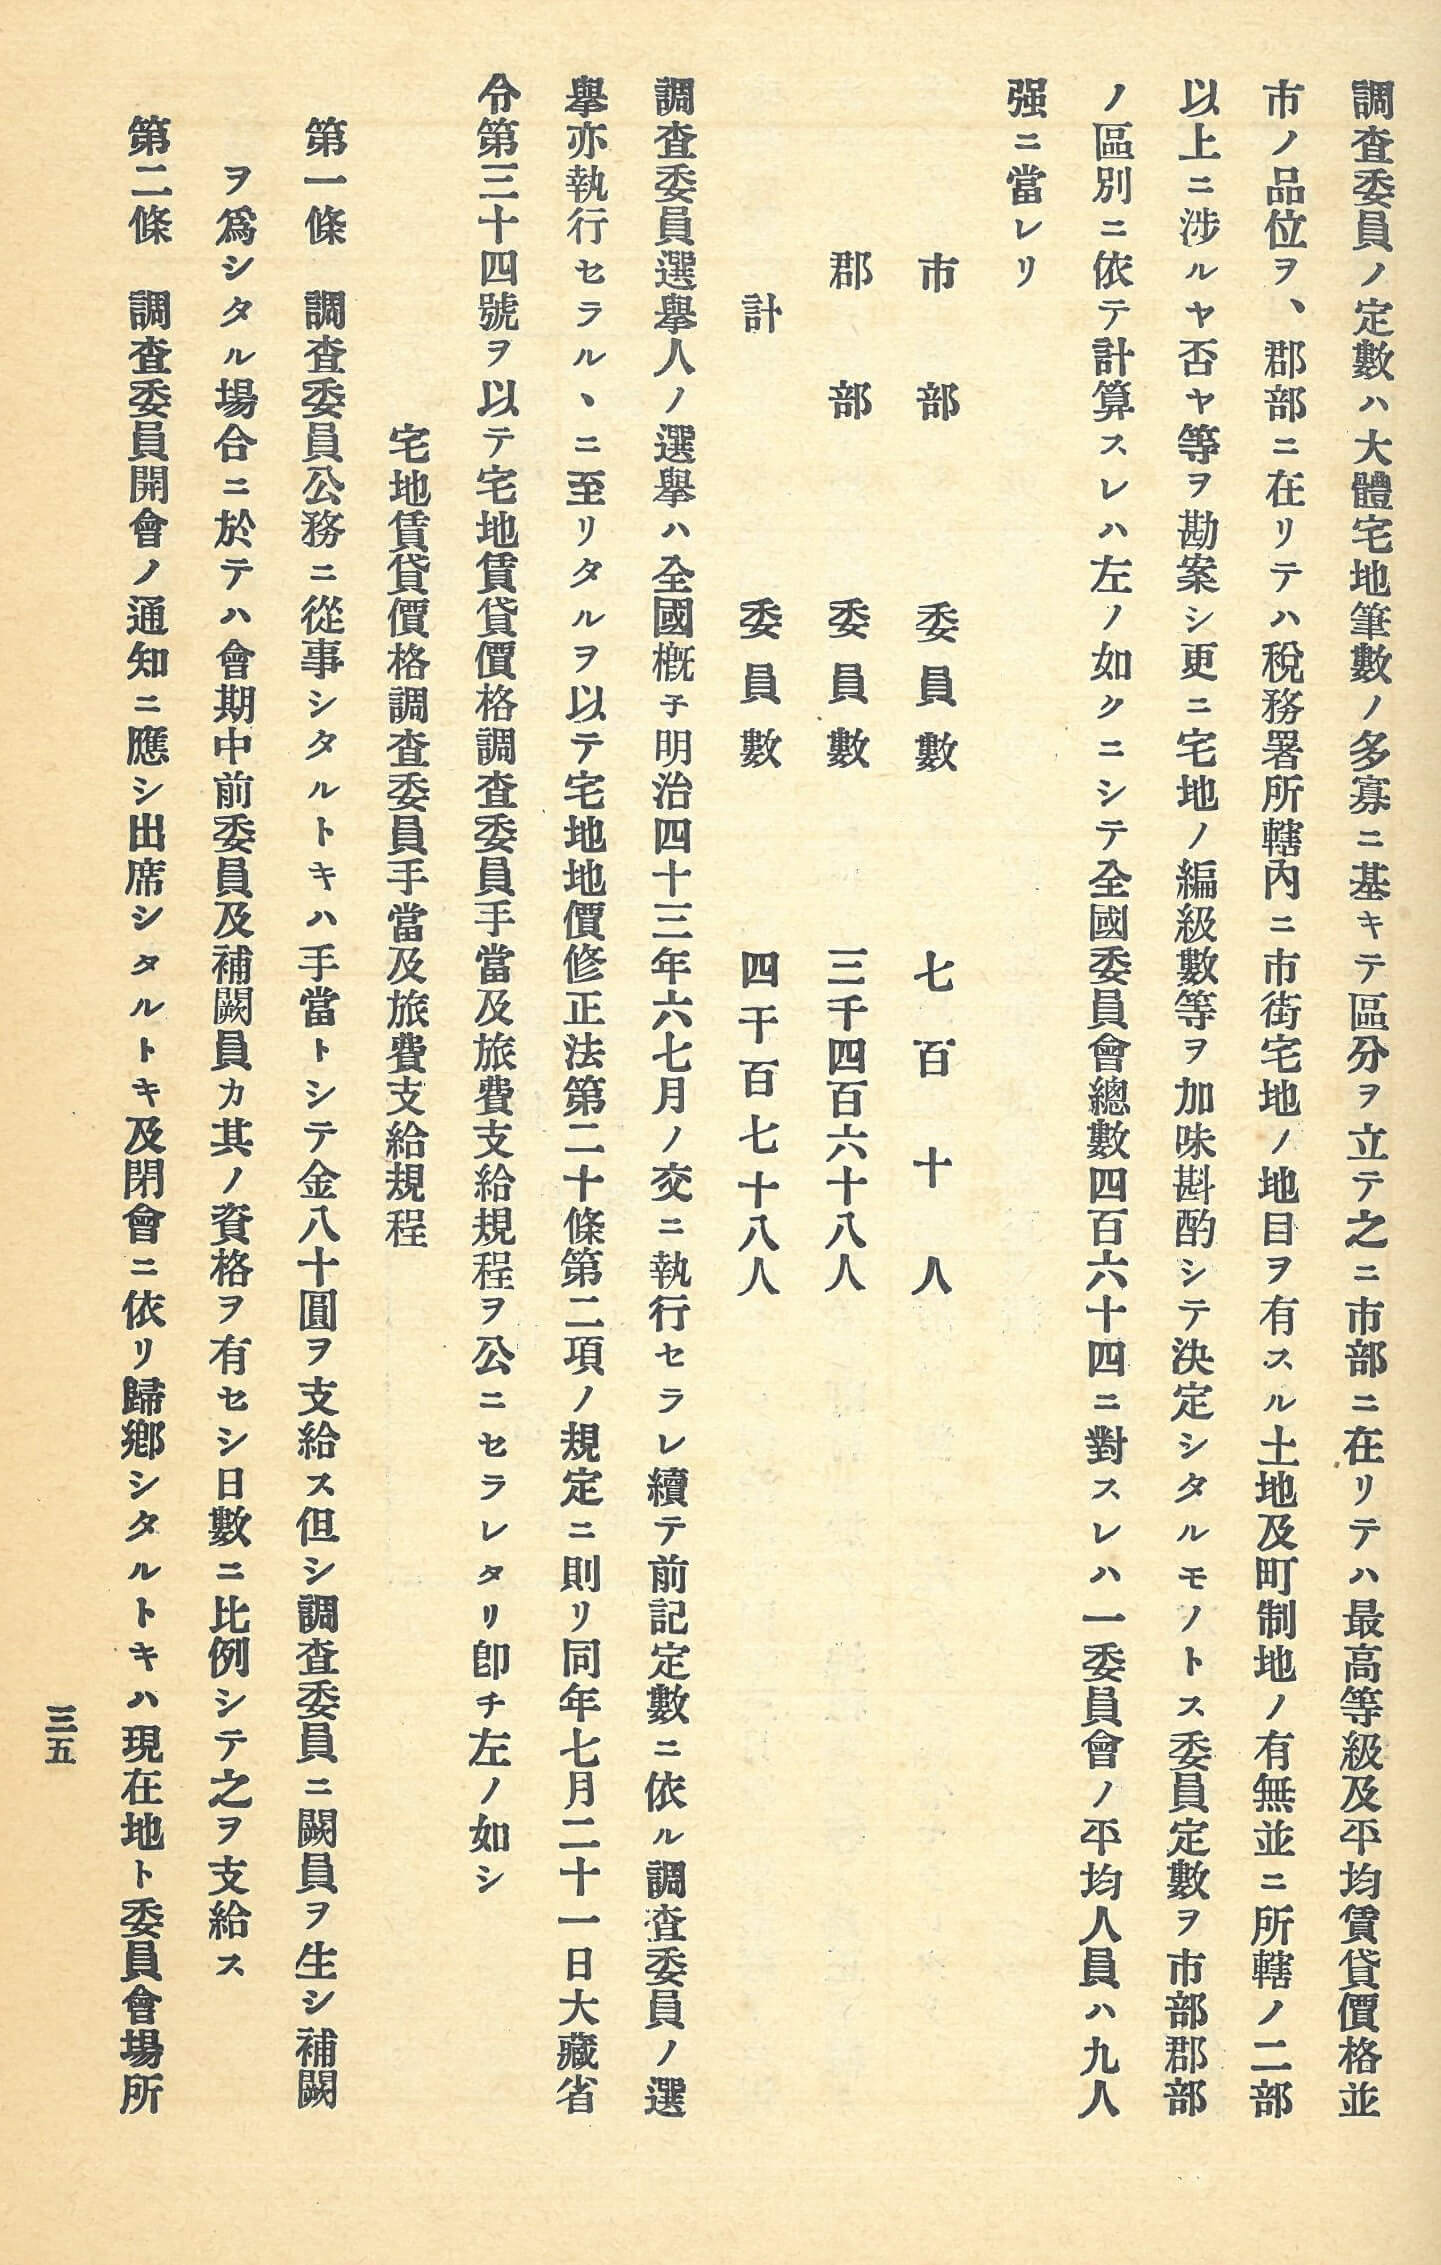 調査委員ノ定數ハ大體宅地筆數ノ多寡ニ基キテ區分ヲ立テ之ニ市部ニ在リテハ最高等級及平均賃貸價格並
市ノ品位ヲ、郡部ニ在リテハ稅務署所轄內ニ市街宅地ノ地目ヲ有スル土地及町制地ノ有無並ニ所轄ノ二部
以上ニ涉ルヤ否ヤ等ヲ勘案シ更ニ宅地ノ編級數等ヲ加味斟酌シテ決定シタルモノトス委員定數ヲ市部郡部
ノ區別ニ依テ計算スレハ左ノ如クニシテ全國委員會總數四百六十四ニ對スレハ一委員會ノ平均人員ハ九人
强ニ當レリ
市部　委員數　七百十人
郡部　委員數　三千四百六十八人
計　委員數　四千百七十八人
調査委員選擧人ノ選擧ハ全國槪子明治四十三年六七月ノ交ニ執行セラレ續テ前記定數ニ依ル調査委員ノ選
擧亦執行セラルヽニ至リタルヲ以テ宅地地價修正法第二十條第二項ノ規定ニ則リ同年七月二十一日大藏省
令第三十四號ヲ以テ宅地賃貸價格調査委員手當及旅費支給規程ヲ公ニセラレタリ卽チ左ノ如シ
宅地賃貸價格調査委員手當及旅費支給規程
第一條　調査委員公務ニ從事シタルトキハ手當トシテ金八十圓ヲ支給ス但シ調査委員ニ闕員ヲ生シ補闕
ヲ爲シタル場合ニ於テハ會期中前委員及補闕員カ其ノ資格ヲ有セシ日數ニ比例シテ之ヲ支給ス
第二條　調査委員開會ノ通知ニ應シ出席シタルトキ及閉會ニ依リ歸鄕シタルトキハ現在地ト委員會場所
三五